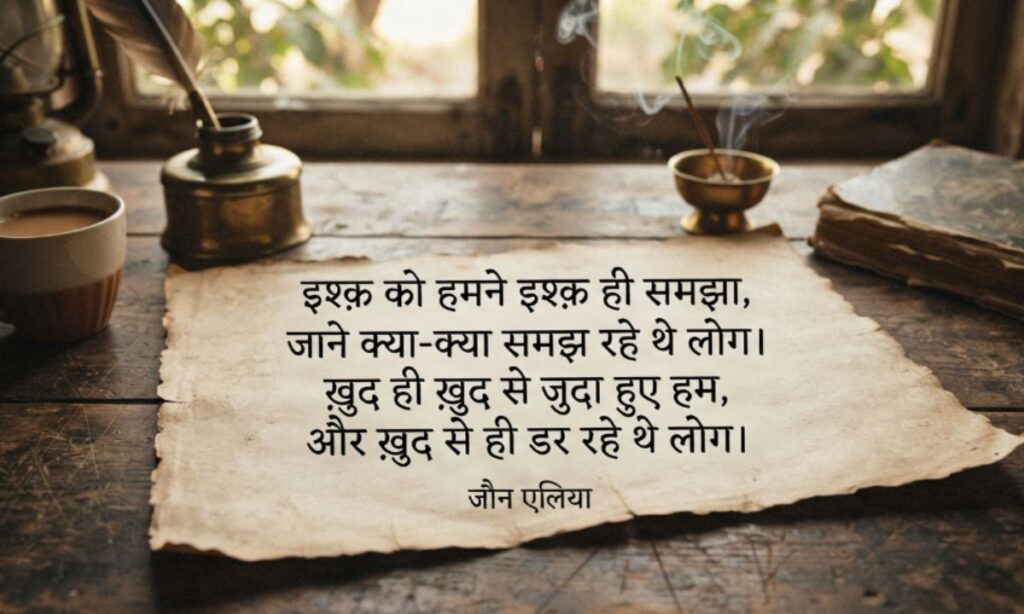 इश्क़ को हमने इश्क़ ही समझा,
जाने क्या-क्या समझ रहे थे लोग।
ख़ुद ही ख़ुद से जुदा हुए हम,
और ख़ुद से ही डर रहे थे लोग।
जौन एलिया